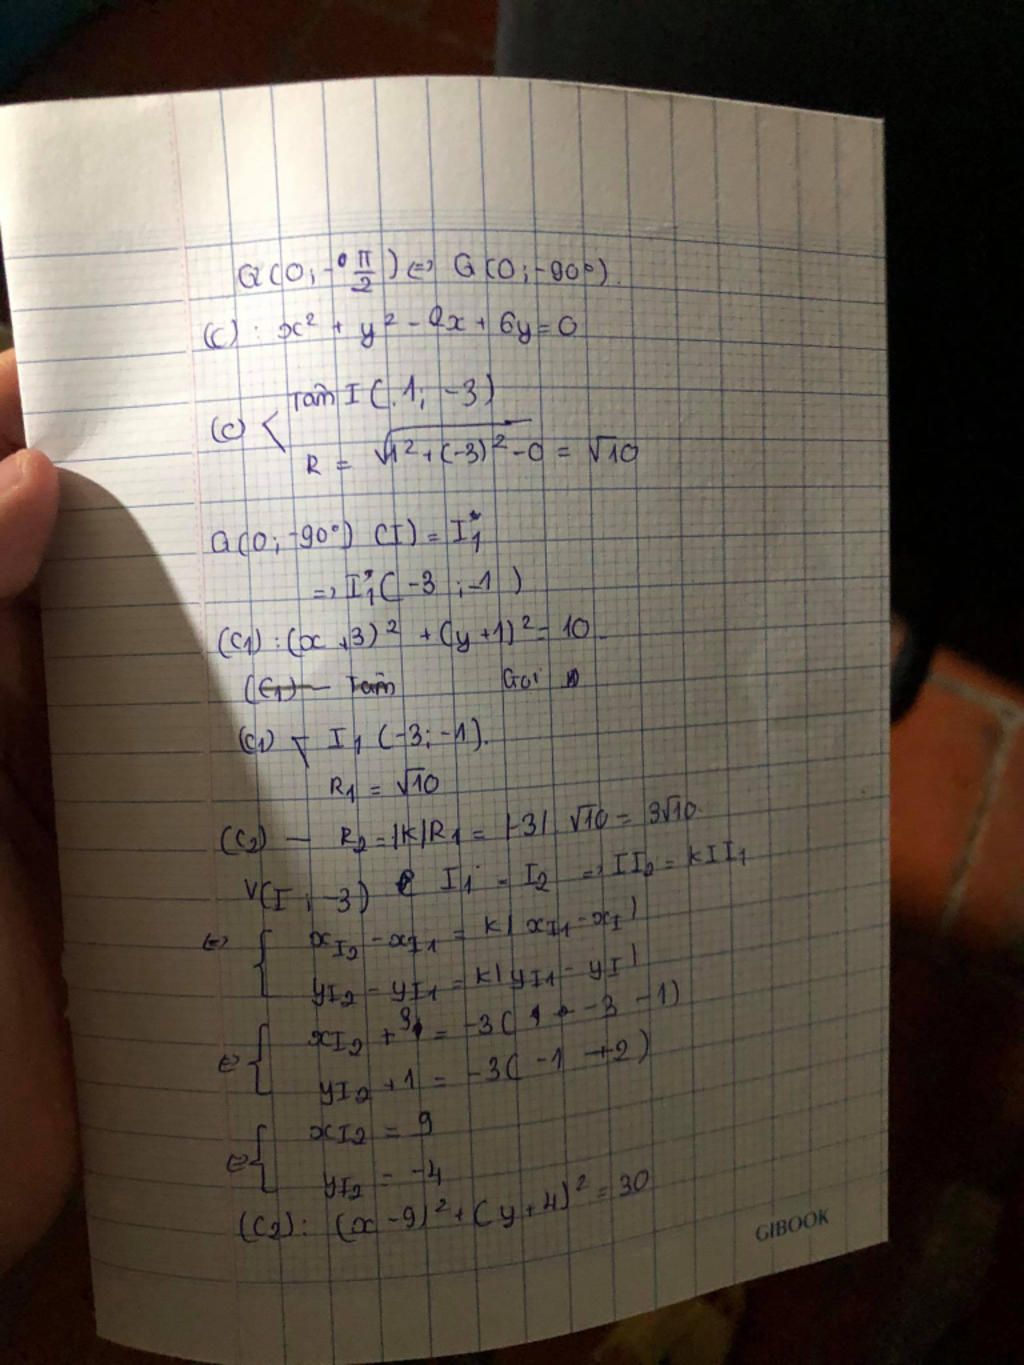 Q(O; -π/2) ⇔ Q(O; -90°).
(C): x² + y² - 2x + 6y = 0
Tâm I(1; -3)
(C) <
R = √1² + (-3)² - 0 = √10
Q(O; -90°) (I) = I₁
=> I₁(-3; -1)
(C₁): (x + 3)² + (y + 1)² = 10
(C₁) — Tâm Gọi
(C₁) < I₁(-3; -1).
R₁ = √10
(C₂) — R₂ = |k|R₁ = |-3| √10 = 3√10
V(I; -3) I₁ = I₂ => II₂ = kII₁
⇔ { xI₂ - xI₁ = k(xI₁ - xI)
yI₂ - yI₁ = k(yI₁ - yI)
⇔ { xI₂ + 3 = -3(-3 - 1)
yI₂ + 1 = -3(-1 + 2)
⇔ { xI₂ = 9
yI₂ = -4
(C₂): (x - 9)² + (y + 4)² = 30
GIBOOK